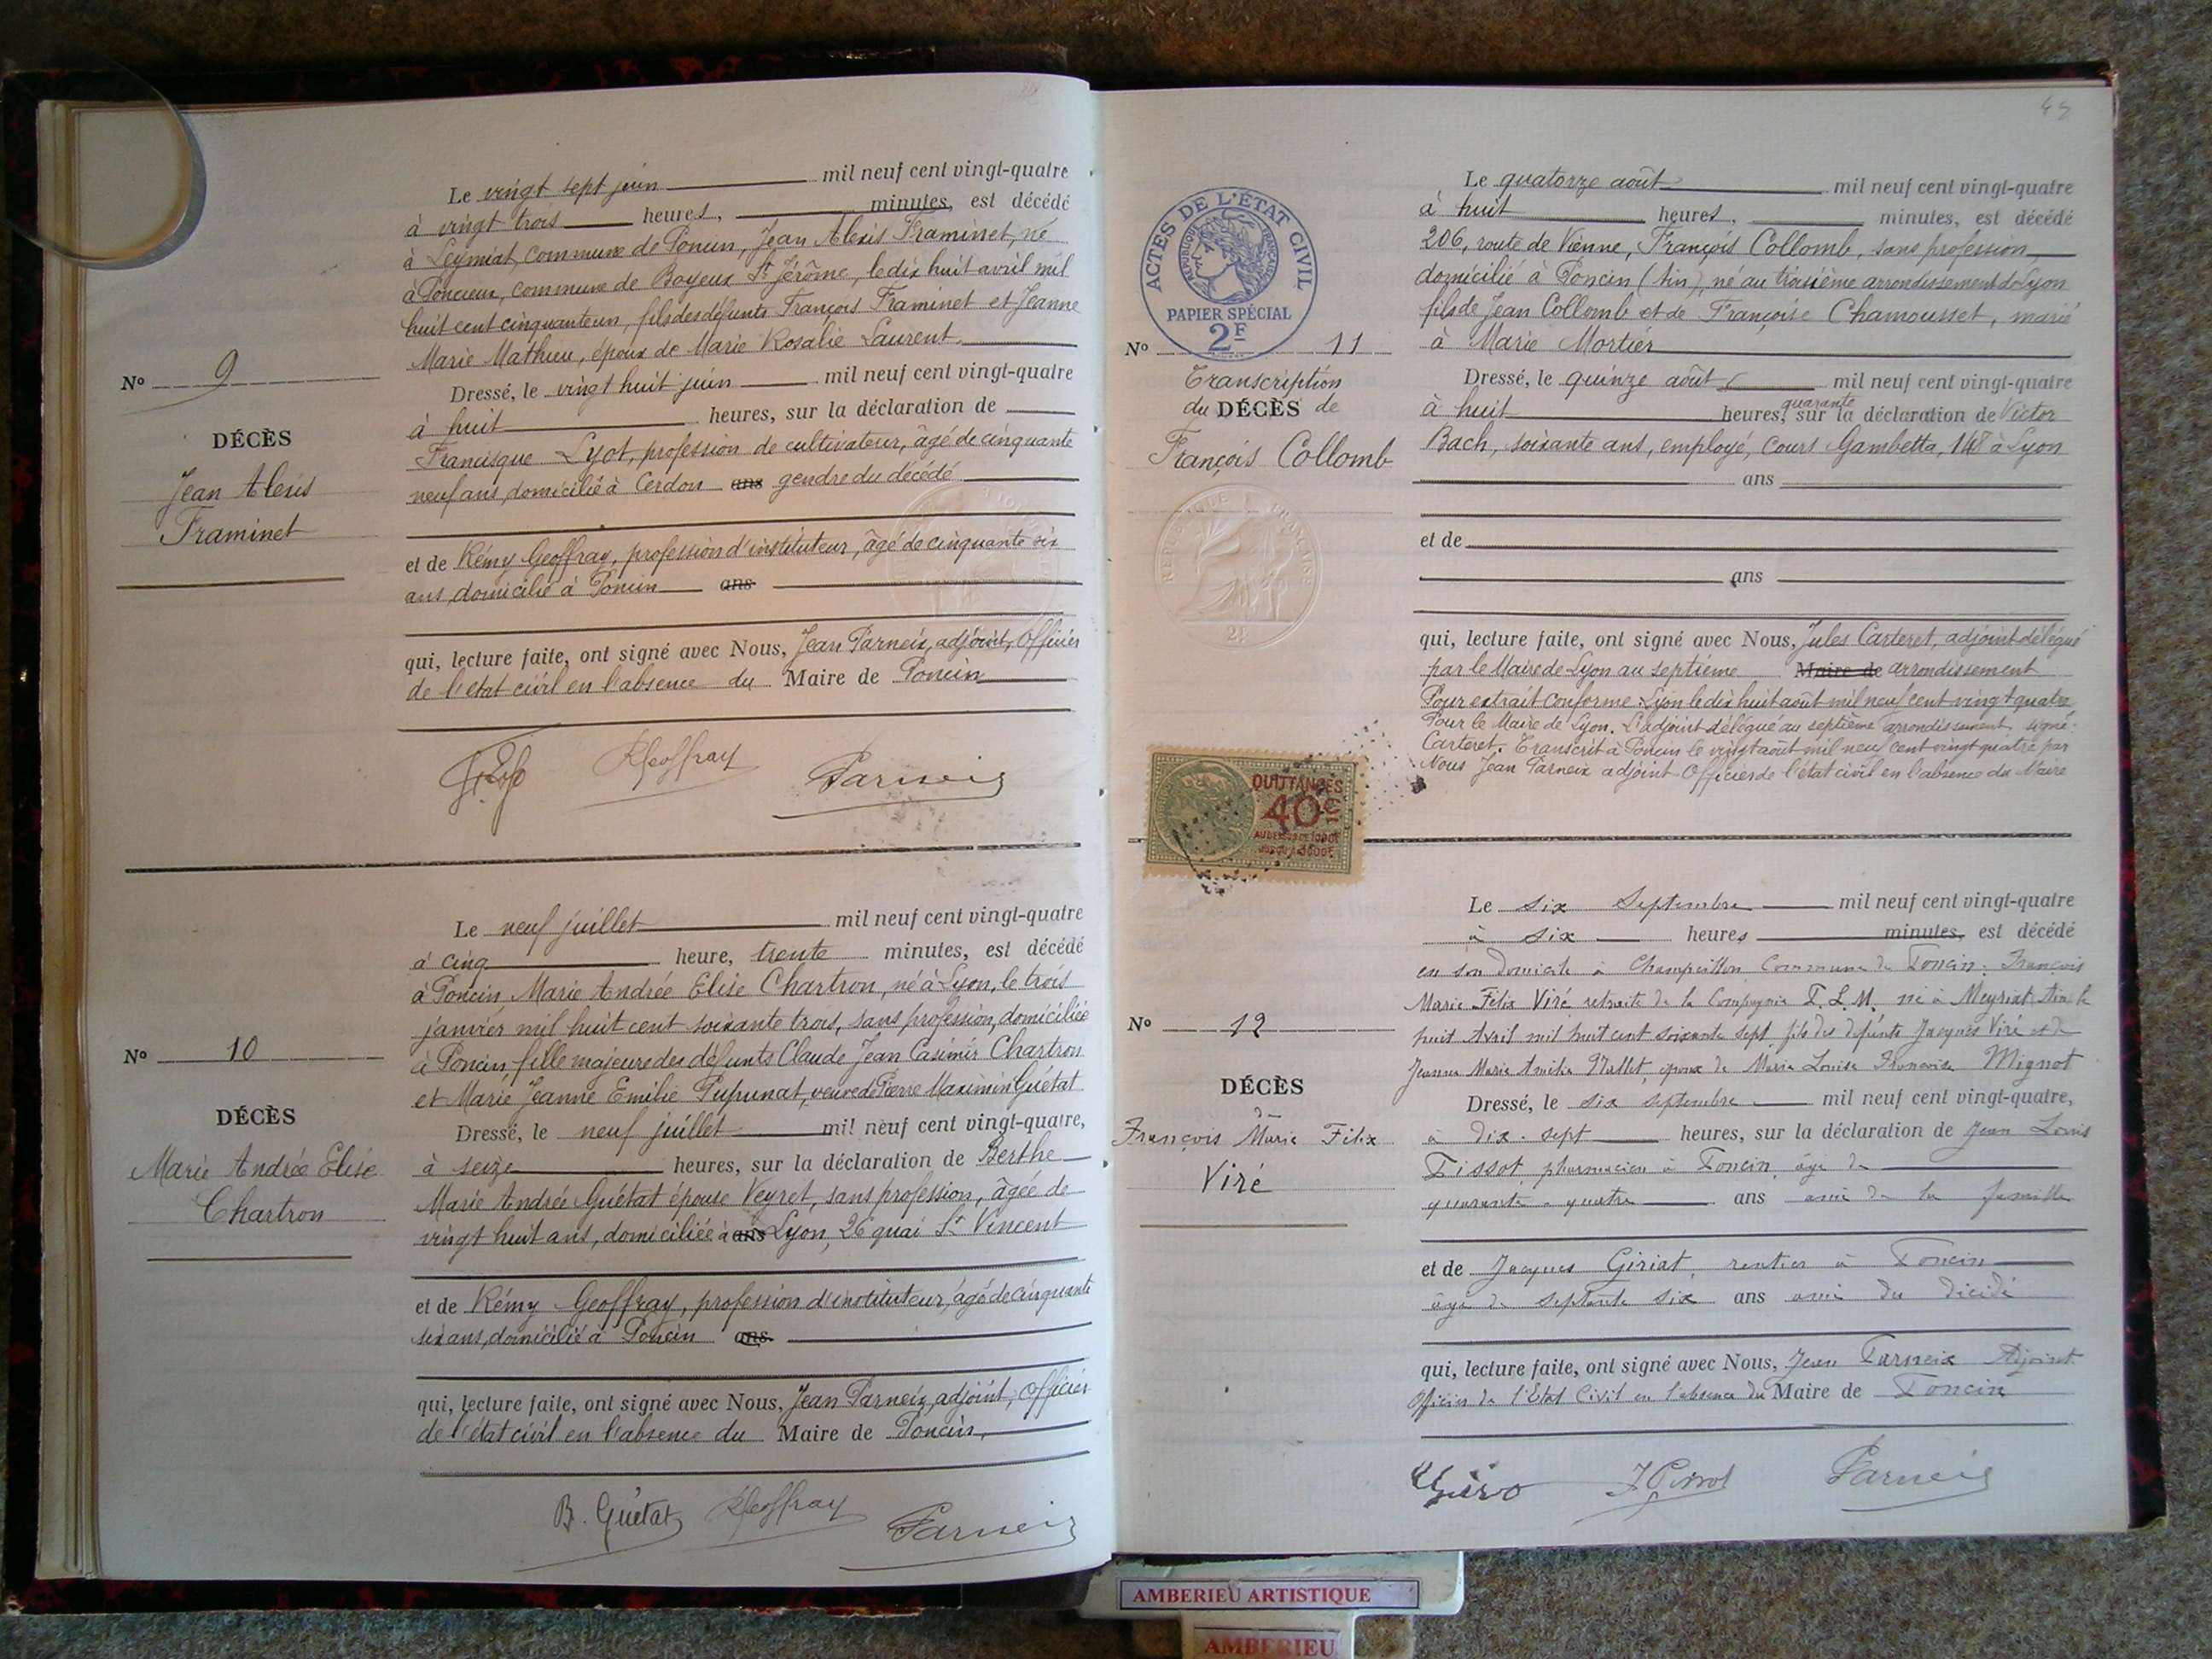 Le vingt sept juin mil neuf cent vingt-quatre
à vingt trois heures, minutes, est décédé
à Leymiat, commune de Poncin, Jean Alexis Framinet, né
à Poncieux, commune de Boyeux St Jérôme, le dix huit avril mil
huit cent cinquante un, fils des défunts François Framinet et Jeanne
Marie Mathieu, époux de Marie Rosalie Laurent.
Dressé, le vingt huit juin mil neuf cent vingt-quatre
à huit heures, sur la déclaration de
Francisque Lyot, profession de cultivateur, âgé de cinquante
neuf ans, domicilié à Cerdon ans gendre du décédé
et de Rémy Geoffray, profession d'instituteur, âgé de cinquante six
ans, domicilié à Poncin ans
qui, lecture faite, ont signé avec Nous, Jean Parneix, adjoint, Officier
de l'état civil en l'absence du Maire de Poncin
RGeoffray Parneix
No 9
DÉCÈS
Jean Alexis
Framinet
Le neuf juillet mil neuf cent vingt-quatre
à cinq heure, trente minutes, est décédé
à Poncin Marie Andrée Elise Chartron, né à Lyon, le trois
janvier mil huit cent soixante trois, sans profession, domiciliée
à Poncin, fille majeure des défunts Claude Jean Casimir Chartron
et Marie Jeanne Emilie Pupunat, veuve de Pierre Maximin Guétat
Dressé, le neuf juillet mil neuf cent vingt-quatre,
à seize heures, sur la déclaration de Berthe
Marie Andrée Guétat épouse Veyret, sans profession, âgée de
vingt huit ans, domiciliée à ans Lyon, 26 quai St Vincent
et de Rémy Geoffray, profession d'instituteur, âgé de cinquante
six ans, domicilié à Poncin ans.
qui, lecture faite, ont signé avec Nous, Jean Parneix, adjoint, Officier
de l'état civil en l'absence du Maire de Poncin,
B. Guétat RGeoffray Parneix
No 10
DÉCÈS
Marie Andrée Elise
Chartron
ACTES DE L'ÉTAT CIVIL
RÉPUBLIQUE FRANÇAISE
PAPIER SPÉCIAL
2F
No 11
Transcription
du DÉCÈS de
François Collomb
RÉPUBLIQUE FRANÇAISE
Le quatorze août mil neuf cent vingt-quatre
à huit heures, minutes, est décédé
206, route de Vienne, François Collomb, sans profession,
domicilié à Poncin (Ain), né au troisième arrondissement de Lyon
fils de Jean Collomb et de Françoise Chamousset, marié
à Marie Mortier
Dressé, le quinze août mil neuf cent vingt-quatre
quarante
à huit heures, sur la déclaration de Victor
Bach, soixante ans, employé, cours Gambetta, 148 à Lyon
ans
et de
ans
qui, lecture faite, ont signé avec Nous, Jules Carteret, adjoint délégué
par le Maire de Lyon au septième Maire de arrondissement
Pour extrait conforme : Lyon le dix huit août mil neuf cent vingt quatre
Pour le Maire de Lyon. L'adjoint délégué au septième arrondissement, signé :
Carteret. Transcrit à Poncin le vingt août mil neuf cent vingt quatre par
Nous Jean Parneix adjoint Officier de l'état civil en l'absence du Maire
QUITTANCES
40c
No 12
DÉCÈS
de
François Marie Félix
Viré
Le six Septembre mil neuf cent vingt-quatre
à six heures minutes, est décédé
en son domicile à Champeillon Commune de Poncin : François
Marie Félix Viré retraité de la Compagnie P.L.M. né à Meyriat Ain le
huit Avril mil huit cent soixante sept fils des défunts Jacques Viré et de
Jeanne Marie Amélie Mallet, époux de Marie Louise Françoise Mignot
Dressé, le six septembre mil neuf cent vingt-quatre,
à dix-sept heures, sur la déclaration de Jean Louis
Pissot, pharmacien à Poncin, âgé de
quarante-quatre ans ami de la famille
et de Jacques Giriat, rentier à Poncin
âgé de septante six ans ami du décédé
qui, lecture faite, ont signé avec Nous, Jean Parneix Adjoint
Officier de l'Etat Civil en l'absence du Maire de Poncin
Parneix
AMBERIEU ARTISTIQUE
AMBERIEU